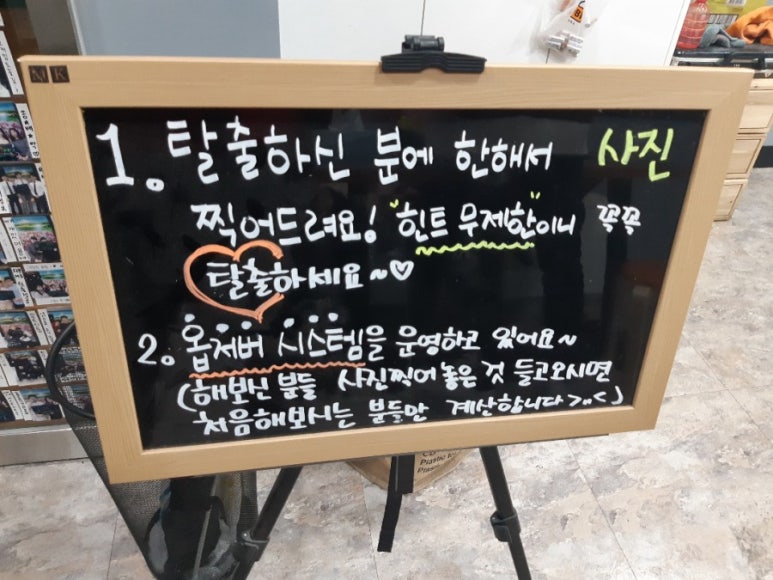 NK
1. 탈출하신 분에 한해서 사진
찍어드려요! "힌트 무제한"이니 꼭꼭
탈출하세요~♡
2. 옵저버 시스템을 운영하고 있어요~
(해보신 분들 사진찍어 놓은 것 들고오시면
처음해보시는 분들만 계산합니다 >"<)
Plastic